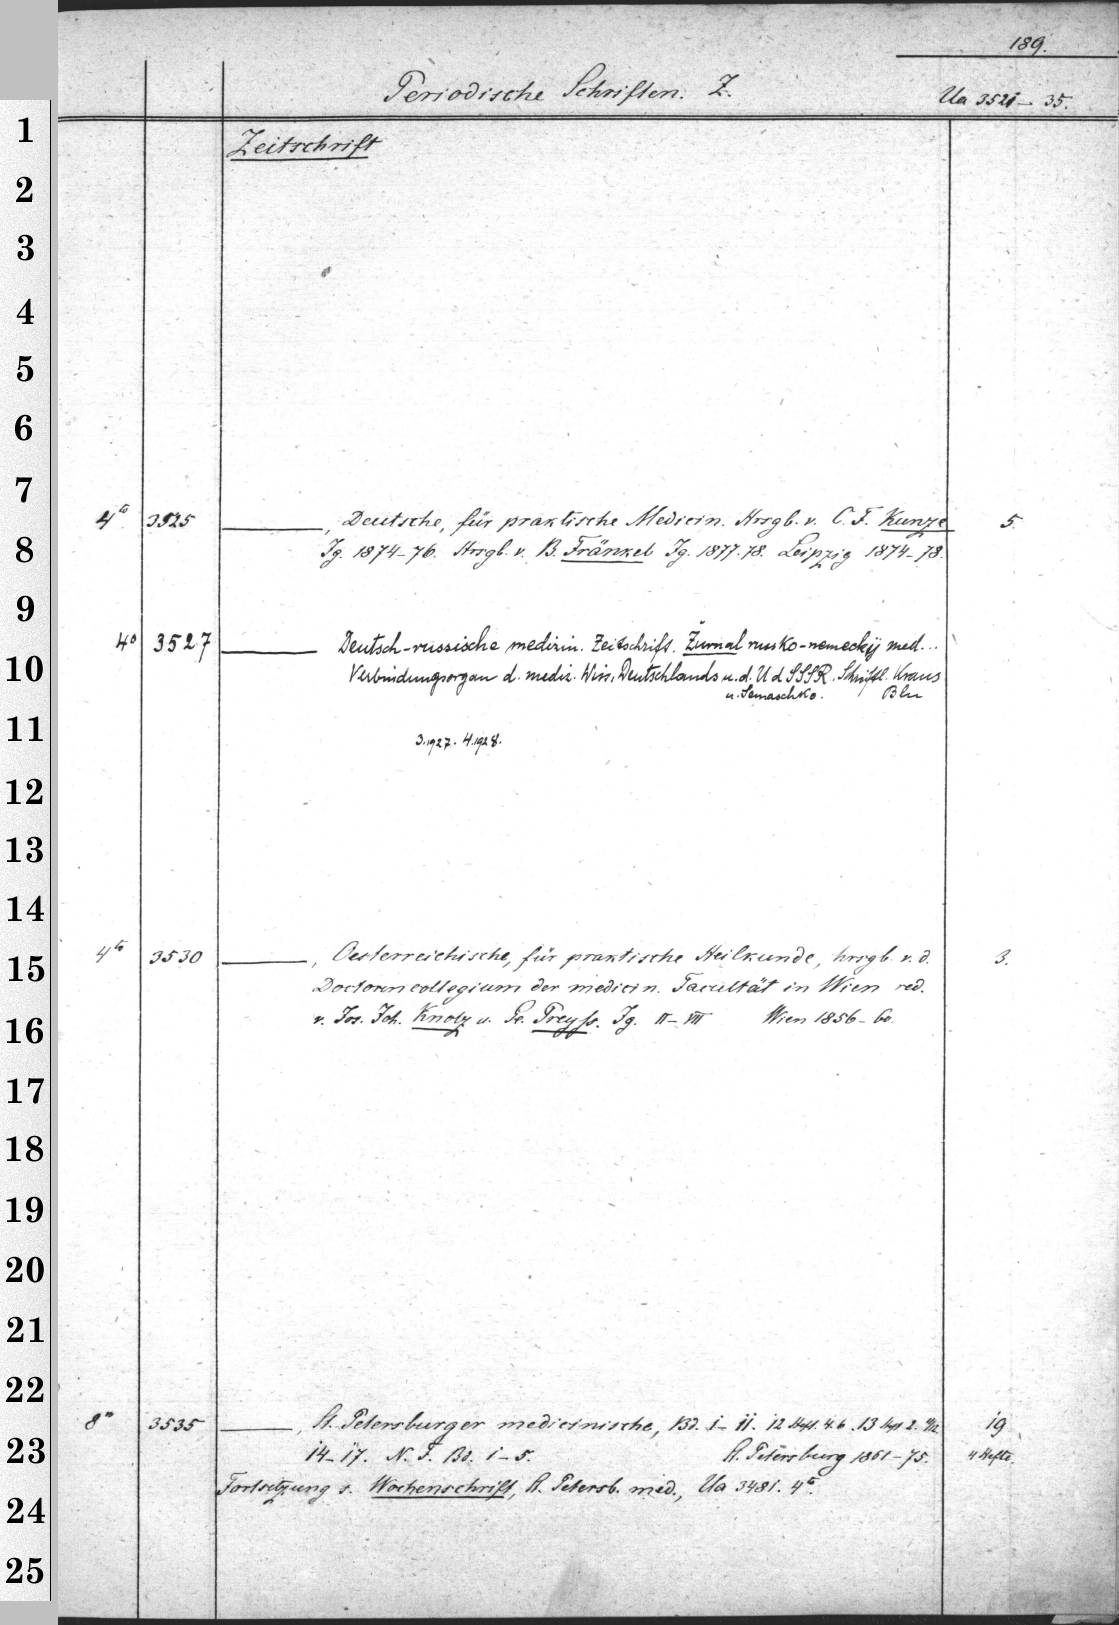 189.
Periodische Schriften. Z. Ua 3521–35.
1
Zeitschrift
2
3
4
5
6
7
4to 3525 ———, Deutsche, für praktische Medicin. Hrsgb. v. C. F. Kunze 5.
8
Jg. 1874–76. Hrsgb. v. B. Fränkel Jg. 1877.78. Leipzig 1874–78.
9
4o 3527 ——— Deutsch-russische medizin. Zeitschrift. Žurnal rusko-nemeckij med...
10
Verbindungsorgan d. mediz. Wiss. Deutschlands u. d. U d SSSR. Schriftl. Kraus
u. Semaschko. Bln
11
3.1927. 4.1928.
12
13
14
4to 3530 ———, Oesterreichische, für praktische Heilkunde, hrsgb. v. d. 3.
15
Doctorencollegium der medicin. Facultät in Wien red.
16
v. Jos. Joh. Knolz u. Preyss. Jg. II–VIII Wien 1856–60.
17
18
19
20
21
22
8o 3535 ———, St. Petersburger medicinische, Bd. 1–11. 12 Hft. 4.6. 13 Hft 2. 19
23
14–17. N. F. Bd. 1–5. St. Petersburg 1861–75. 4 Hefte.
Fortsetzung s. Wochenschrift, St. Petersb. med., Ua 3481. 4to.
24
25